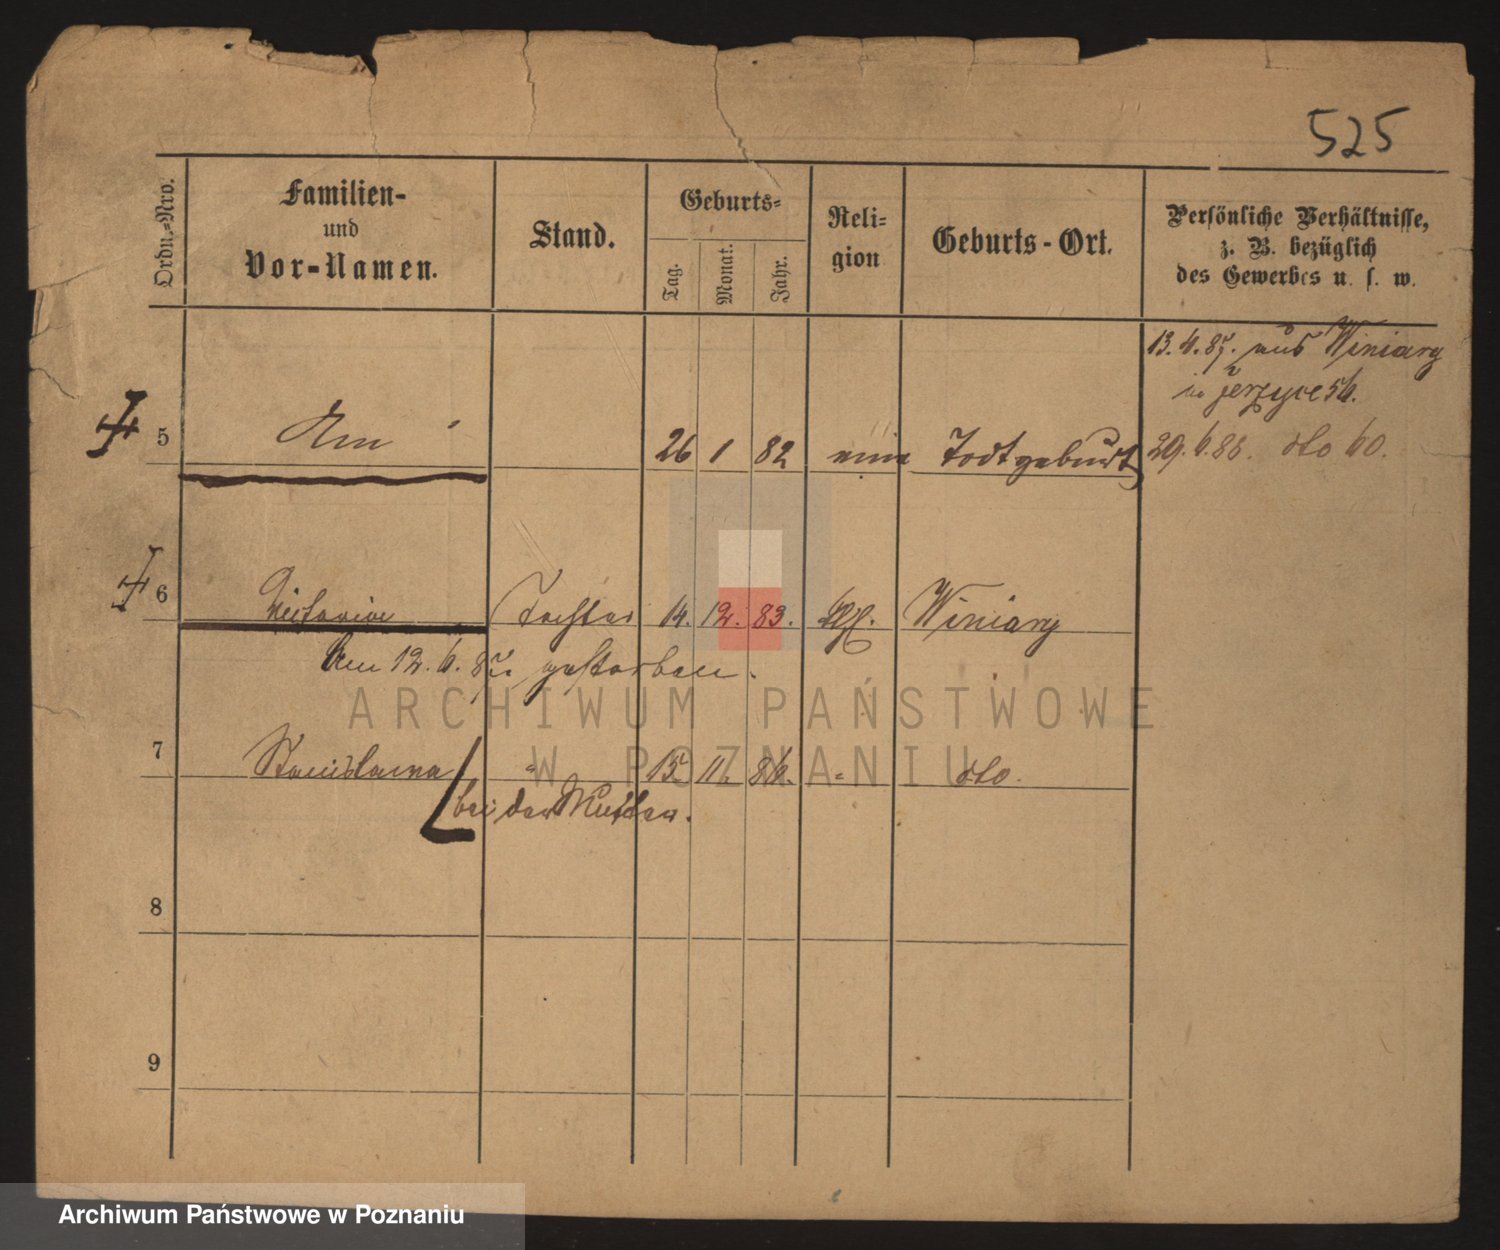 525
Ordn.-Nro.
Familien-
und
Vor-Namen.
Stand.
Geburts-
Tag.
Monat.
Jahr.
Reli-
gion
Geburts-Ort.
Persönliche Verhältnisse,
z. B. bezüglich
des Gewerbes u. s. w.
13.4.87. aus Winiary
in Jerzyce 56.
5 Am 26 1 82 eine Todtgeburt
29.6.88. dto 60.
6 Victoria Tochter 14. 12. 83. Winiary
Am 12.6.87. gestorben.
7 Stanislawa " 15 11. 86. " dto.
bei der Mutter.
8
9
ARCHIWUM PAŃSTWOWE
W POZNANIU
Archiwum Państwowe w Poznaniu